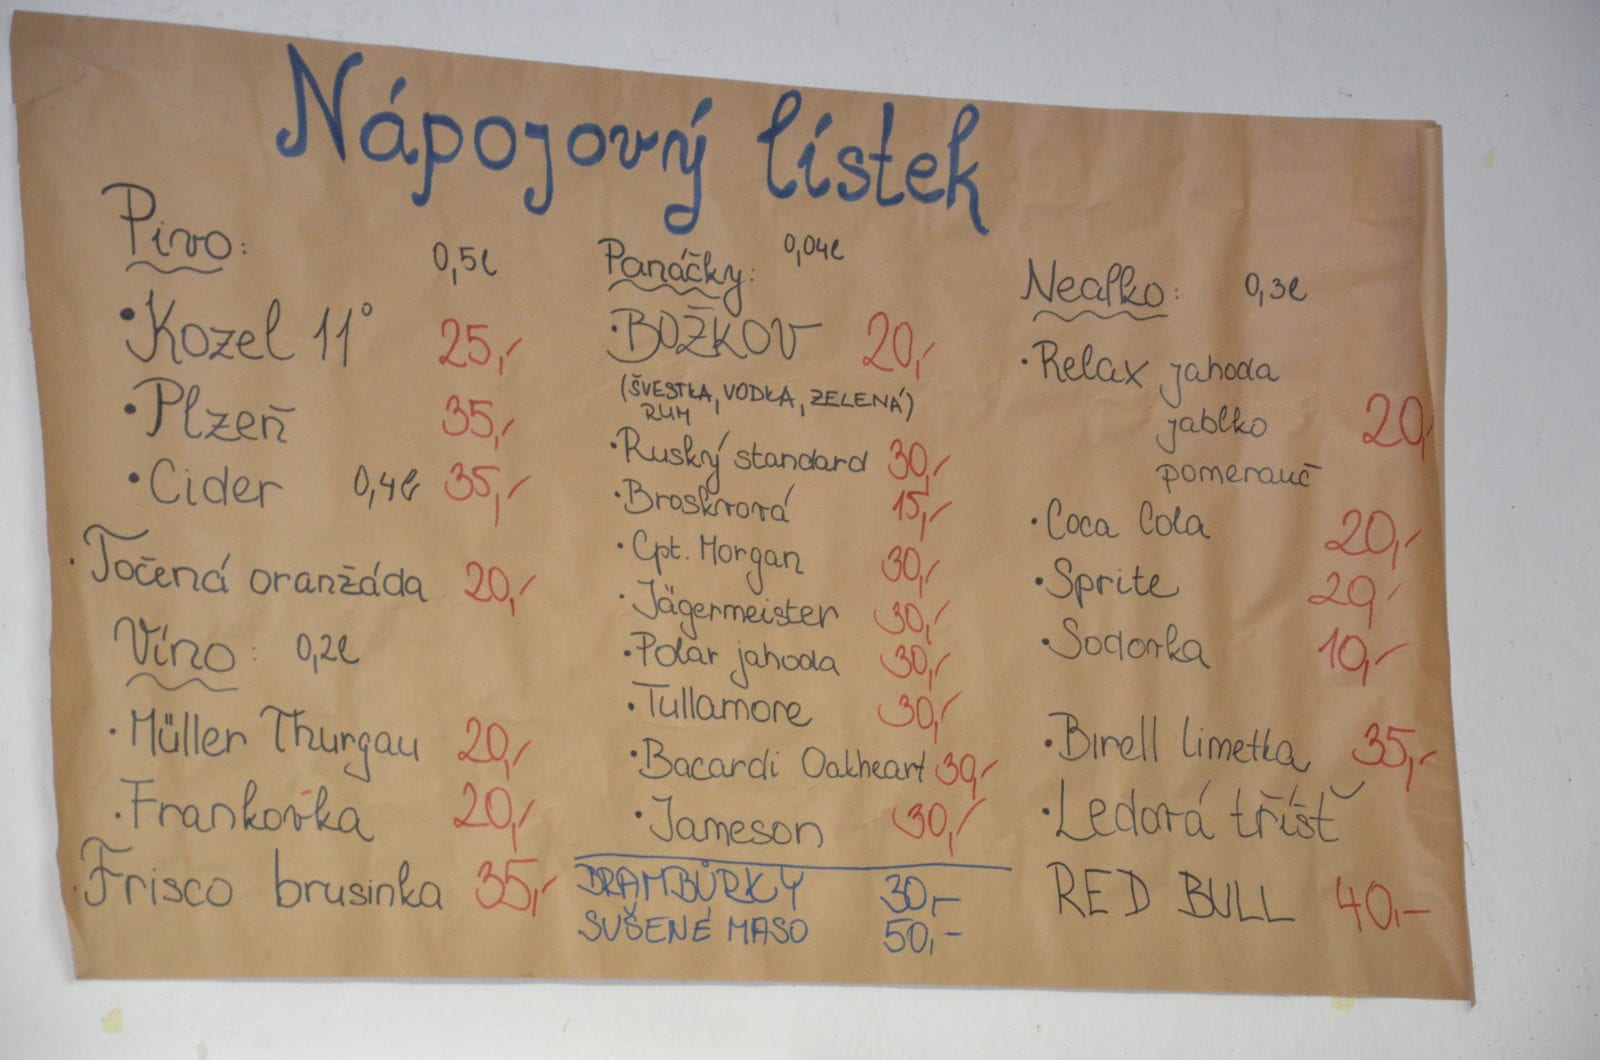 Nápojový lístek
Pivo: 0,5l
• Kozel 11° 25,-
• Plzeň 35,-
• Cider 0,4l 35,-
• Točená oranžáda 20,-
Víno: 0,2l
• Müller Thurgau 20,-
• Frankovka 20,-
• Frisco brusinka 35,-
Panáčky: 0,04l
• BOŽKOV 20,-
(ŠVESTKA, VODKA, ZELENÁ)
RUM
• Ruský standard 30,-
• Broskvová 15,-
• Cpt. Morgan 30,-
• Jägermeister 30,-
• Polar jahoda 30,-
• Tullamore 30,-
• Bacardi Oakheart 30,-
• Jameson 30,-
BRAMBŮRKY 30,-
SUŠENÉ MASO 50,-
Nealko: 0,3l
• Relax jahoda
jablko 20,
pomeranč
• Coca Cola 20,-
• Sprite 20,-
• Sodovka 10,-
• Birell limetka 35,-
• Ledová tříšť
RED BULL 40,-